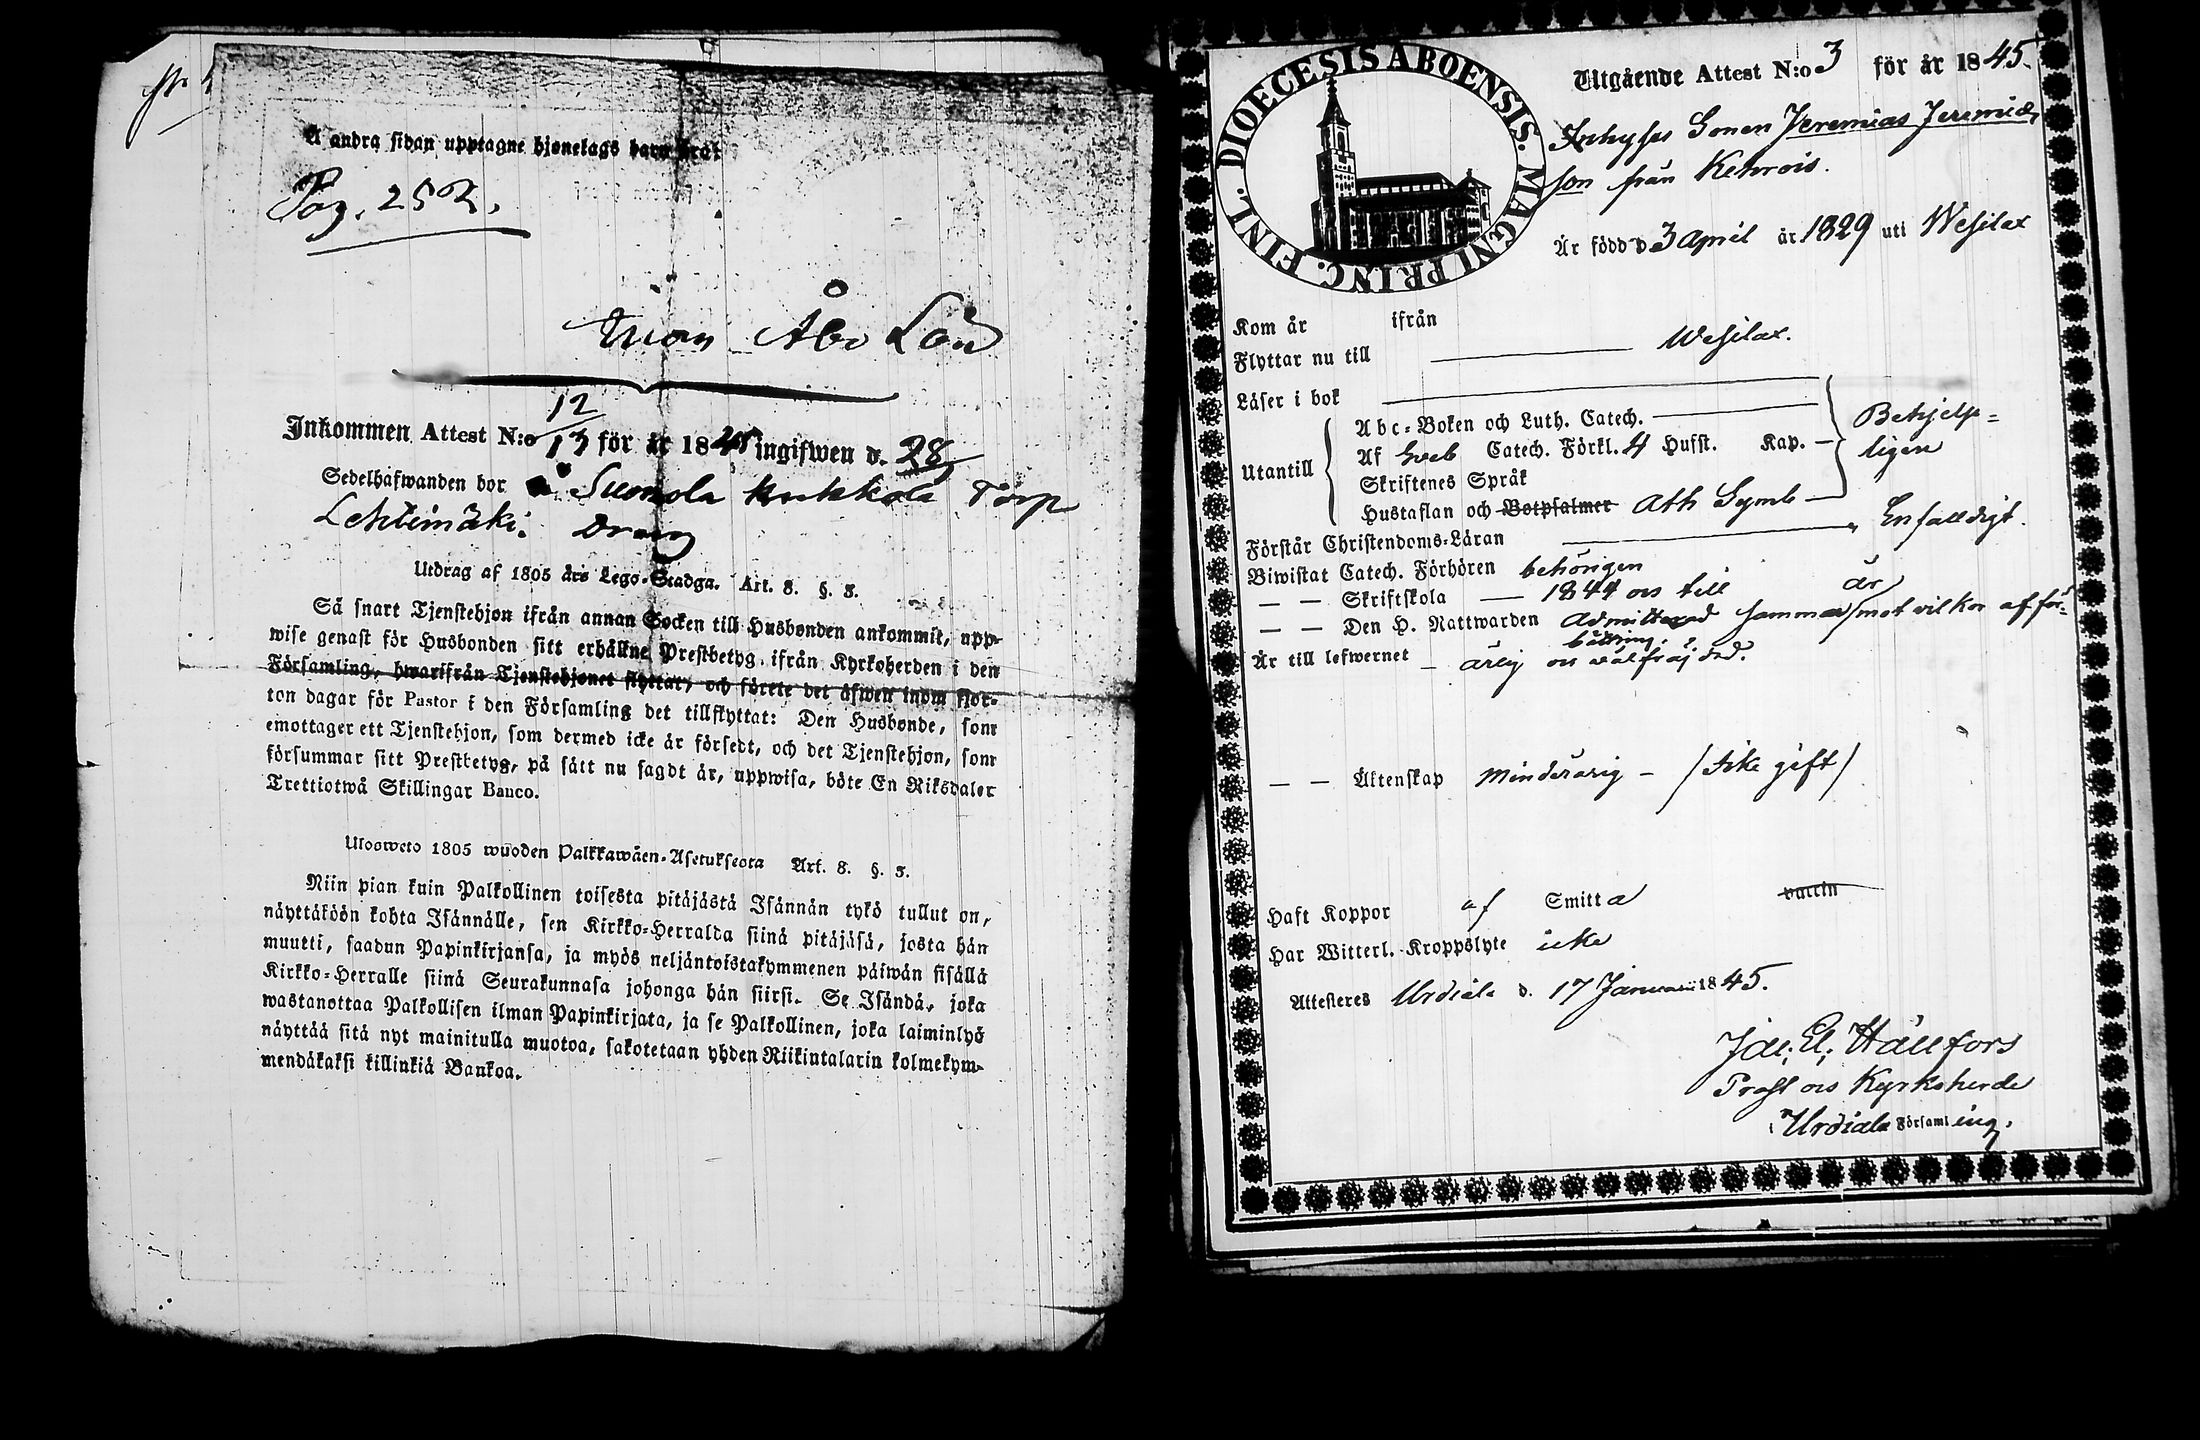 Å andra sidan upptagne hjonelags barn äro:
Pag. 252.
Åbo Län
Inkommen Attest N:o 12/13 för år 1845 ingifwen d. 28
Sedelhafwanden bor å Suomela Kukkola Torp
Lehtimäki. Dräng
Utdrag af 1805 års Lego-Stadga. Art. 8. §. 3.
Så snart Tjenstehjon ifrån annan Socken till Husbonden ankommit, upp-
wise genast för Husbonden sitt erhållne Prestbetyg ifrån Kyrkoherden i den
Församling, hwarifrån Tjenstehjonet flyttat, och förete det äfwen inom fjor-
ton dagar för Pastor i den Församling det tillflyttat: Den Husbonde, som
emottager ett Tjenstehjon, som dermed icke är försedt, och det Tjenstehjon, som
försummar sitt Prestbetyg, på sätt nu sagdt är, uppwisa, böte En Riksdaler
Trettiotwå Skillingar Banco.
Ulosweto 1805 wuoden Palkkawäen-Asetuksesta Art. 8. §. 3.
Niin pian kuin Palkollinen toisesta pitäjästä Isännän tykö tullut on,
näyttäköön kohta Isännälle, sen Kirkko-Herralda siinä pitäjäsä, josta hän
muutti, saadun Papinkirjansa, ja myös neljäntoistakymmenen päiwän sisällä
Kirkko-Herralle siinä Seurakunnasa johonga hän siirsi. Se Isändä, joka
wastanottaa Palkollisen ilman Papinkirjata, ja se Palkollinen, joka laiminlyö
näyttää sitä nyt mainitulla muotoa, sakotetaan yhden Riikintalarin kolmekym-
mendäkaksi killinkiä Bankoa.
DIOECESIS ABOENSIS. MAGNI PRINC. FINL.
Utgående Attest N:o 3 för år 1845.
Inhyses Sonen Jeremias Jeremiæ
son från Kehrois.
Är född d 3 April år 1829 uti Wesilax
Kom år ifrån
Flyttar nu till Wesilax.
Läser i bok
Utantill
Abc-Boken och Luth. Catech.
Af Sveb Catech. Förkl. 4 Hufst. Kap.
Skriftenes Språk
Hustaflan och Botpsalmer Ath Symb
Behjelp=
ligen
Förstår Christendoms-Läran Enfalldigt.
Biwistat Catech. Förhören behörigen
— — Skriftskola 1844 och till år
— — Den H. Nattwarden Admitterad samma /mot vilkor af för-
bättring.
Är till lefwernet ärlig och välfräjdad.
— — Äktenskap Minderårig – /Icke gift/
Haft Koppor af Smitta vaccin
Har Witterl. Kroppslyte icke
Attesteres Urdiala d. 17 Januarii 1845.
Jac. El. Hällfors
Prost och Kyrkoherde
i Urdiala Församling.